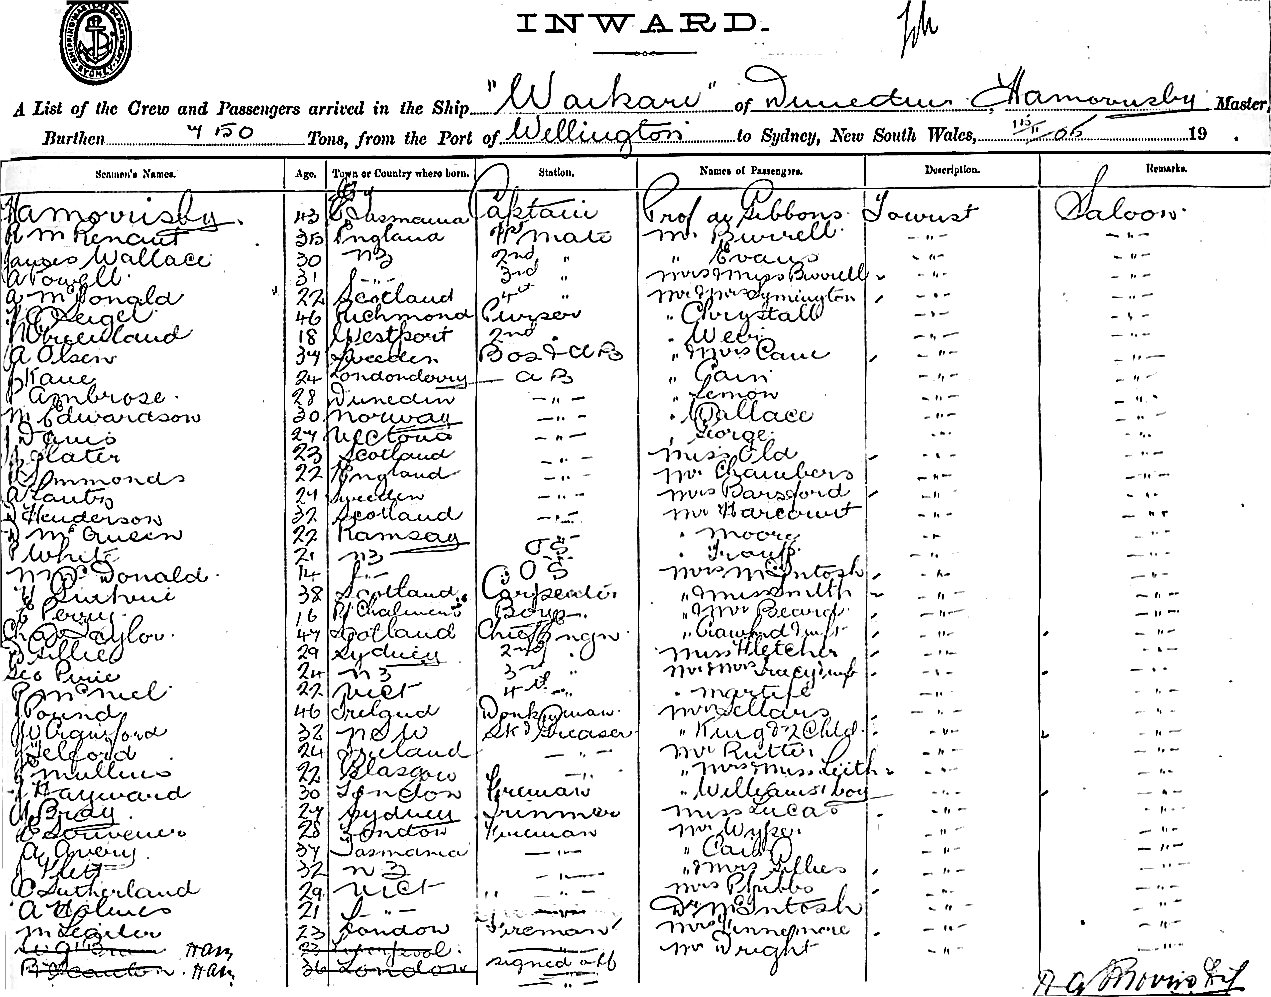 INWARD.
A List of the Crew and Passengers arrived in the Ship "Waikare" of Dunedin, HAMorrisby Master,
Burthen Tons, from the Port of Wellington to Sydney, New South Wales, 06 19 .
Seamen's Names. Age. Town or Country where born. Station. Names of Passengers. Description. Remarks.
HAMorrisby. 43 Tasmania Captain Prof Gibbons Tourist Saloon.
35 England 1st Mate Mr Burrell -"- -"-
James Wallace 30 NZ 2nd " " Evans -"- -"-
A Powell 31 -"- 3rd " Mrs & Miss Burrell -"- -"-
A McDonald 22 Scotland 4th " Mr & Mrs Symington -"- -"-
46 Richmond Purser " Chrystall -"- -"-
18 Westport 2nd " " Weir -"- -"-
A Olsen 34 Sweden Bos & AB " Mrs Cane -"- -"-
J Kane 24 Londonderry AB " Cain -"- -"-
Ambrose 28 Dunedin -"- " Lemon -"- -"-
M Edwardson 30 Norway -"- " Wallace -"- -"-
27 Victoria -"- " George -"- -"-
Slater 23 Scotland -"- Miss Old -"- -"-
Simmonds 22 England -"- Mr Chambers -"- -"-
24 Sweden -"- Mrs -"- -"-
Henderson 32 Scotland -"- Mr Harcourt -"- -"-
McQueen 22 Ramsay -"- " Moore -"- -"-
White 21 NZ OS " -"- -"-
McDonald 14 -"- OS Mrs McIntosh -"- -"-
Guthrie 38 Scotland Carpenter " Miss Smith -"- -"-
E Perry 16 Pt Chalmers Boy " Beard -"- -"-
Taylor 47 Scotland Chief Engr " Crawford & Inft -"- -"-
Gillies 29 Sydney 2nd " Miss Fletcher -"- -"-
Geo Pirie 24 NZ 3rd " Mr & Mrs Tracy & Inf -"- -"-
McNiel 22 Vict 4th " " -"- -"-
Pound 46 Ireland Donkeyman Mrs Sellars -"- -"-
Crawford 32 NSW Greaser " King & 2 Chld -"- -"-
Telford 24 Ireland -"- Mr Rutter -"- -"-
J Mullins 22 Glasgow -"- " Mrs & Miss Leith -"- -"-
J Hayward 30 London Fireman " Williams & boy -"- -"-
Bray 27 Sydney Trimmer Miss Lucas -"- -"-
28 London Fireman Mr Wyper -"- -"-
Avery 37 Tasmania -"- " -"- -"-
32 NZ -"- " Mrs Gillies -"- -"-
Sutherland 29 Vict " -"- Mrs Phibbs -"- -"-
A Holmes 21 -"- Dr McIntosh -"- -"-
M 23 London Fireman Mrs Finnemore -"- -"-
HAM 23 Liverpool -"- Mr Wright -"- -"-
HAM 36 London signed off
-"-